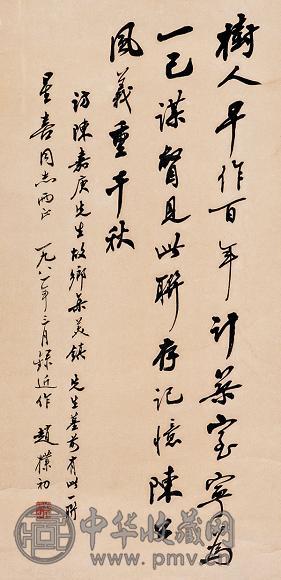 樹人早作百年計築室寧為
一己謀瞥見此聯存記憶陳公
風義重千秋
訪陳嘉庚先生故鄉集美鎮 先生墓前有此一聯
星喜同志兩正 一九八一年三月録近作 趙樸初
中华收藏网
www.pmv.cn